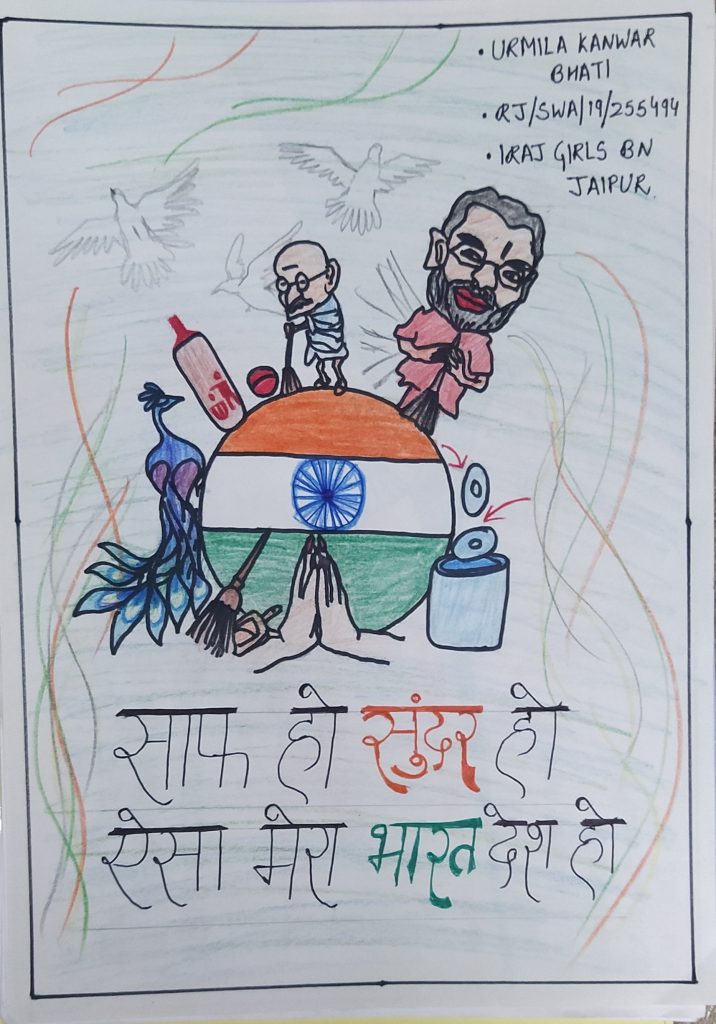 • URMILA KANWAR
BHATI
• RJ/SWA/19/255494
• 1RAJ GIRLS BN
JAIPUR.
साफ हो सुंदर हो
ऐसा मेरा भारत देश हो